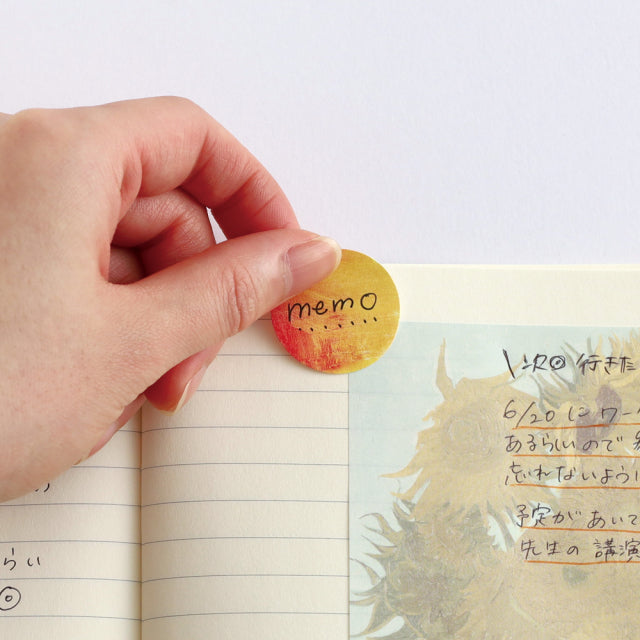 memo
\次回 行きた
6/20 に ワー
あるらしいので
忘れないように
予定があいて
先生の 講演
らい